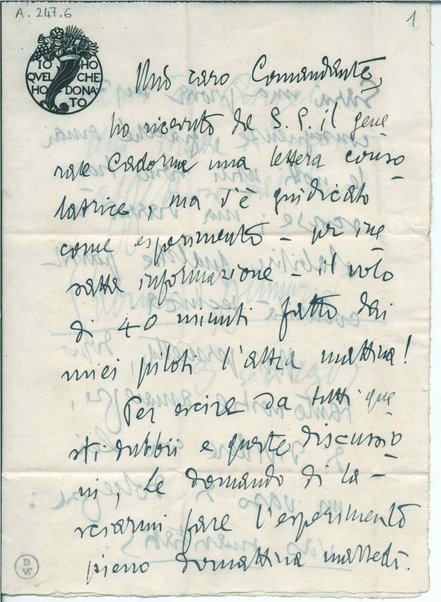 A. 247.6
1
IO HO
QVEL CHE
HO DONA
TO
Mio caro Comandante,
ho ricevuto da S. E. il gene
rale Cadorna una lettera conso
latrice, ma v'è giudicato
come esperimento – per ine
satta informazione – il volo
di 40 minuti fatto dai
miei piloti l'altra mattina!
Per escire da tutti que
sti dubbii e queste discussio
ni, Le domando di la-
sciarmi fare l'esperimento
pieno domattina martedì.